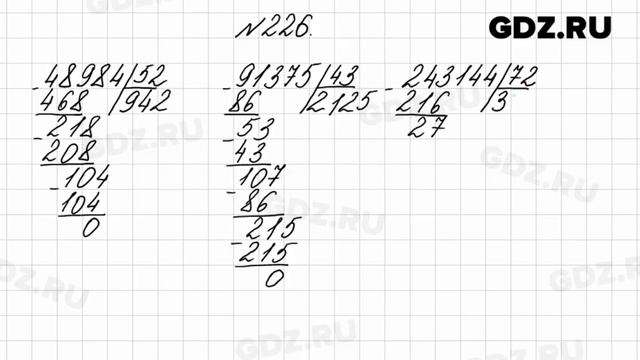 №226.
GDZ.RU
48984 52
468 942
218
208
104
104
0
91375 43
86 2125
53
43
107
86
215
215
0
243144 72
216 3
27
GDZ.RU
GDZ.RU
GDZ.RU
GDZ.RU
GDZ.RU
GDZ.RU